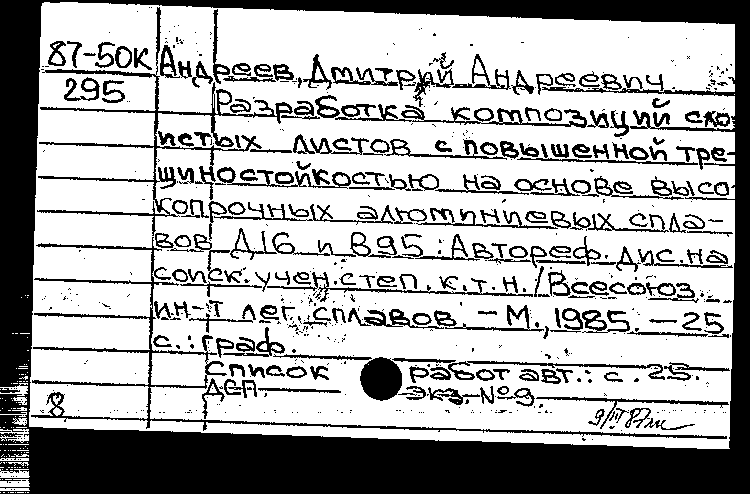 87-50К Андреев, Дмитрий Андреевич
295 Разработка композиций сло-
истых листов с повышенной тре-
щиностойкостью на основе высо-
копрочных алюминиевых спла-
вов Д16 и В95: Автореф. дис. на
соиск. учен. степ. к.т.н. / Всесоюз.
ин-т лег. сплавов. - М., 1985. - 25
с.: граф.
Список работ авт.: с. 25.
ДСП. Экз. № 9.
8 9/III 87